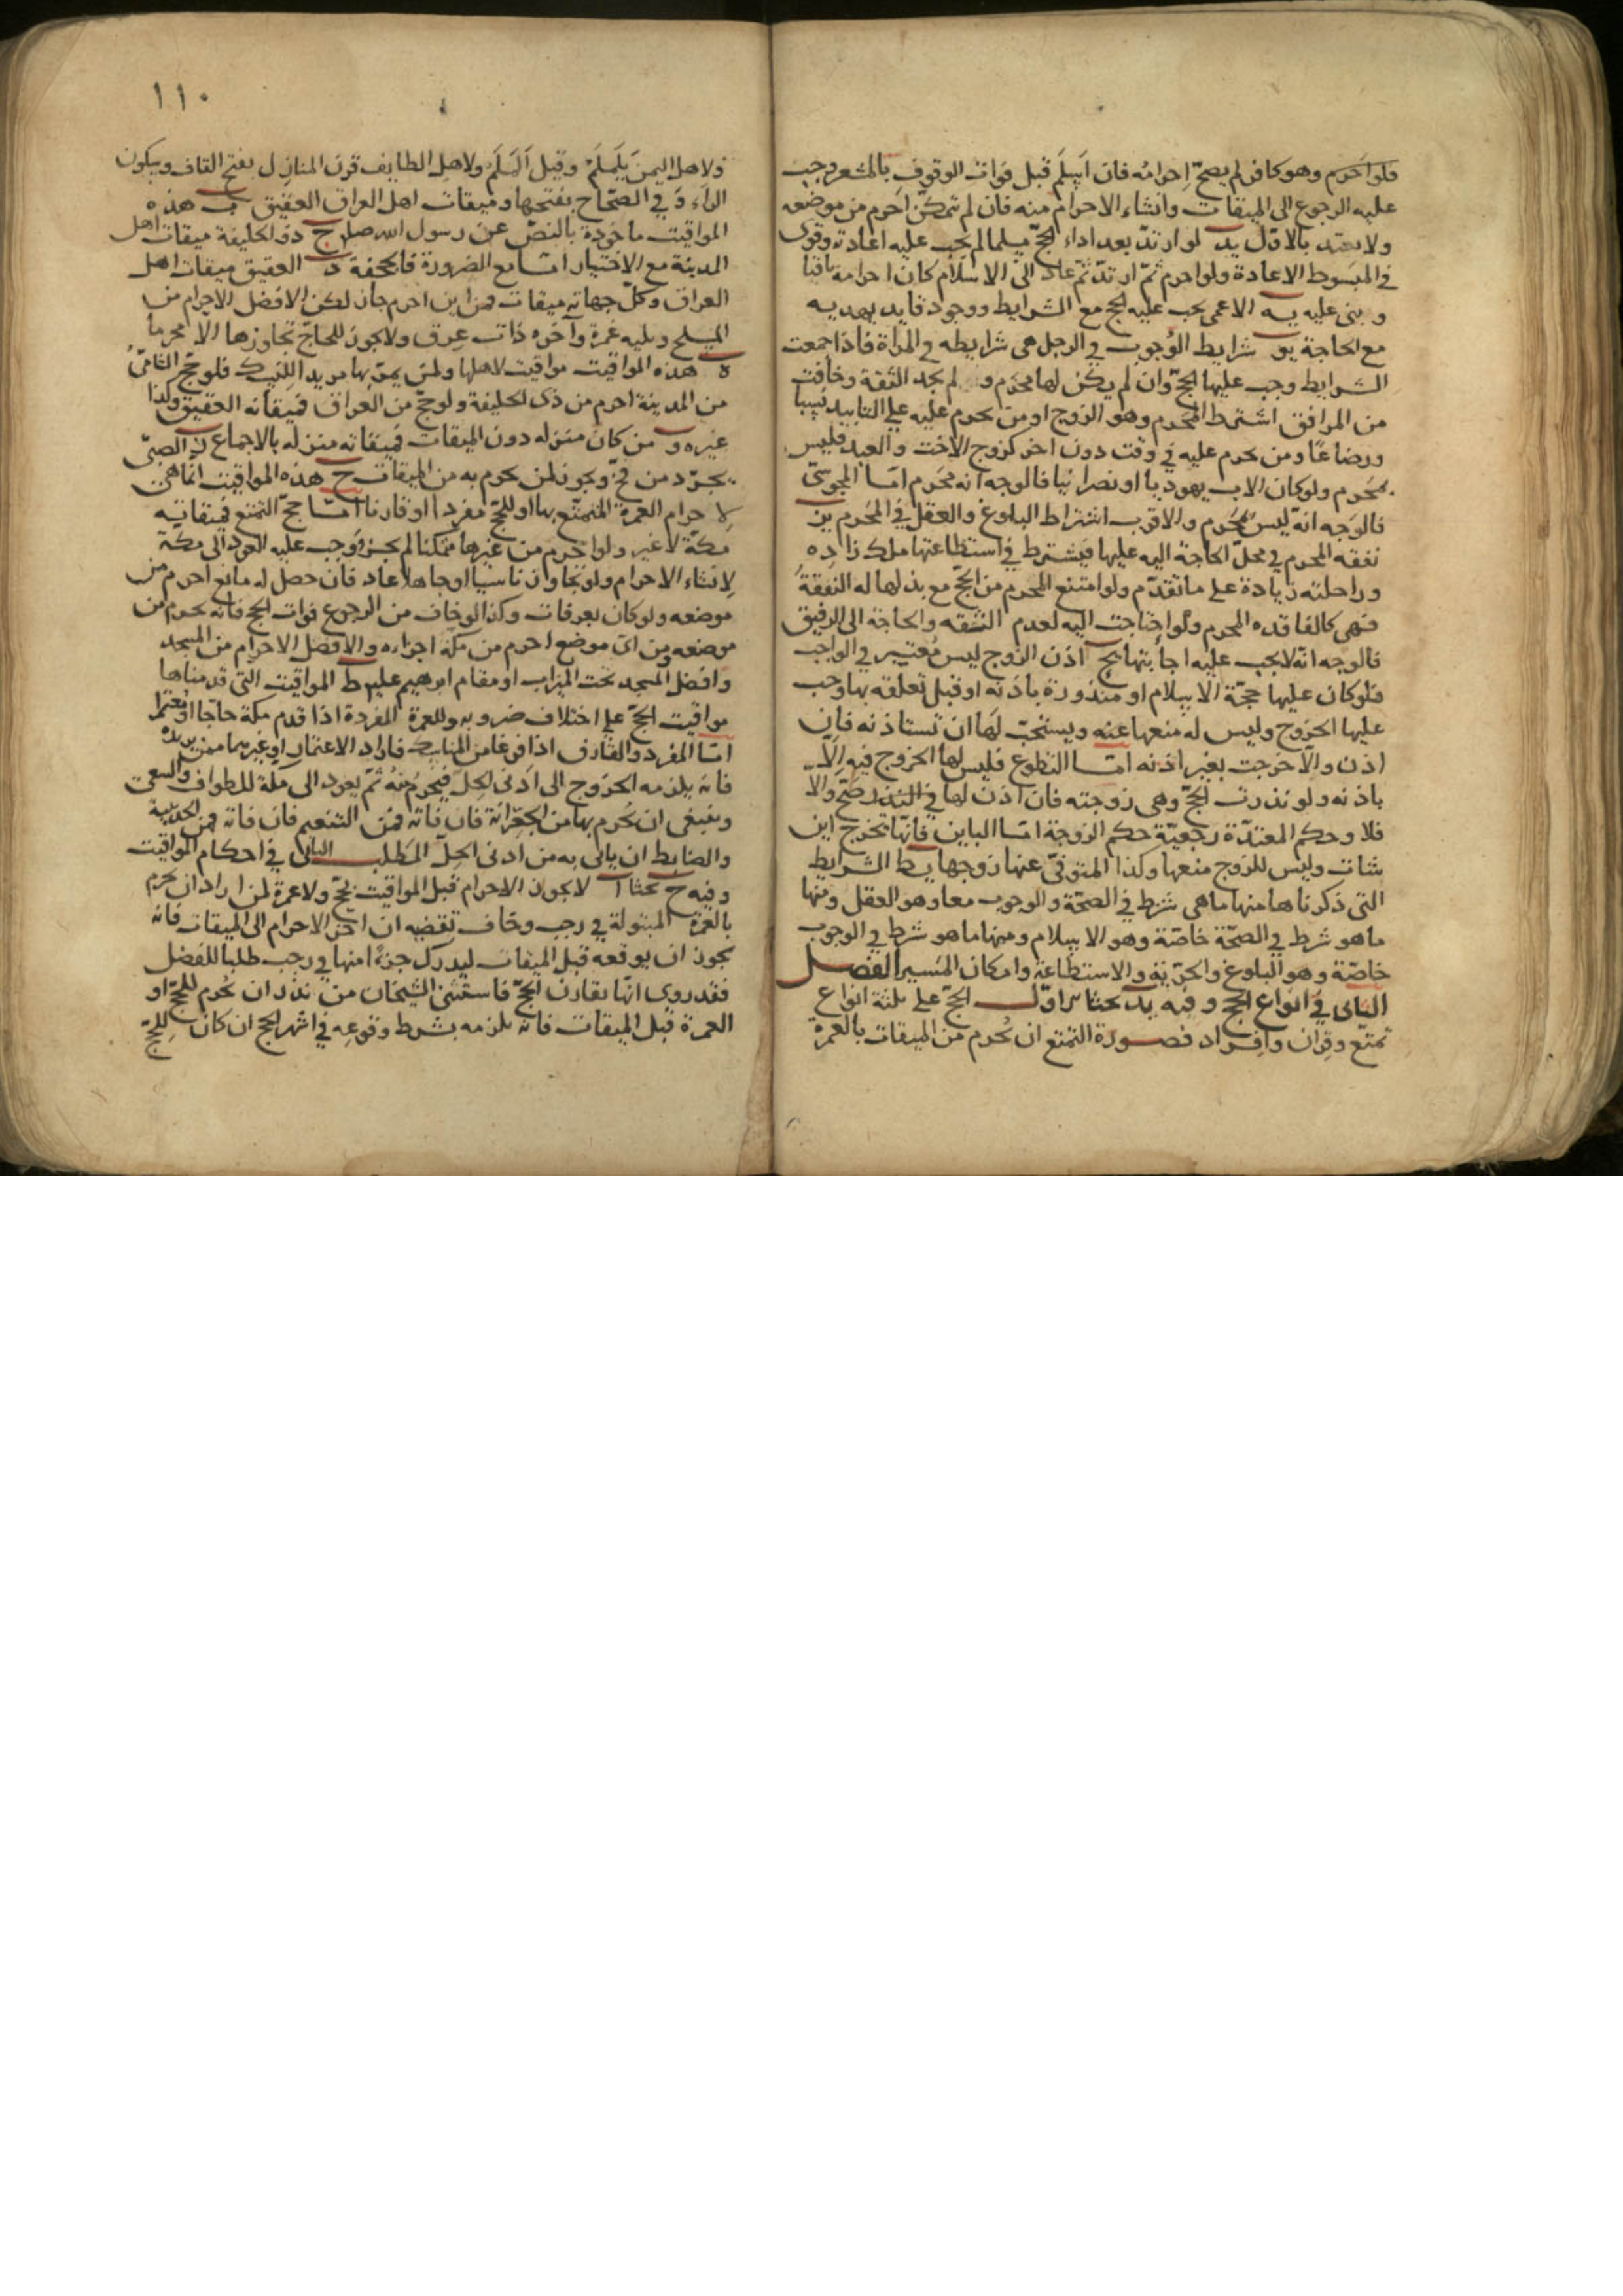 فلو احرم وهو كافر لم يصحّ اِحرامُه فان اَسلَمَ قبل فوات الوقوف بالمشعر وجب
عليه الرجوع الى الميقات وانشاء الاحرام منه فان لم تمكّن اَحرم من موضعه
ولا يعتد بالاوّل يد لو ارتدّ بعد اداء الحجّ مسلما لم يجب عليه اعادته وقوى
في المبسوط الاعادة ولو احرم ثمّ ارتدّ ثمّ عاد الى الاسلام كان احرامه باقيا
وبنى عليه يه الاعمى يجب عليه الحج مع الشرايط ووجود قايد يهديه
مع الحاجة يو شرايط الوُجوب في الرجل هى شرايطه في المراة فاذا جمعت
الشرايط وجب عليها الحجّ وان لم يكن لها محرم ولم يجد الثقة وخافت
من المرافق اشترط المحرم وهو الزوج او من يحرم عليه على التابيد نسبا
ورضاعًا ومن يحرم عليه في وقت دون اخر كزوج الاخت والعبد فليس
بمحرم ولو كان الاب يهوديا او نصرانيا فالوجه انه محرم امّا المجوسىّ
فالوجه انّه ليس بمحرم والاقرب اشتراط البلوغ والعقل في المحرم يز
نفقه المحرم في محلّ الحاجة اليه عليها فيشترط في استطاعتها ملك زادِه
وراحلته زيادة على ما تقدّم ولو امتنع المحرم من الحجّ مع بذلها له النفقة
فهى كالفاقده المحرم ولو احتاجت اليه لعدم الثقه والحاجة الى الرفيق
فالوجه انّه لا يجب عليه اجابتها يح اذن الزوج ليس مُعتبر في الواجب
فلو كان عليها حجّة الاسلام او منذورة باذنه او قبل تعلقه بها وجب
عليها الخروج وليس له منعها عنه ويستحبّ لها ان تستاذنه فان
اذن والّا خرجت بغير اذنه امّا التطوع فليس لها الخروج فيه اِلّا
باذنه ولو نذرت الحجّ وهى زوجته فان اذن لها في النذر صحّ والّا
فلا وحكم المعتدّة رجعيّة حكم الزوجة امّا الباين فانّها تخرج اين
شات وليس للزوج منعها وكذا المتوفىّ عنها زوجها يط الشرايط
التى ذكرناها منها ما هى شرط في الصحّة والوجوب معا وهو العقل ومنها
ما هو شرط في الصحّة خاصّة وهو الاسلام ومنها ما هو شرط في الوجوب
خاصّة وهو البلوغ والحرّية والاستطاعة وامكان المسير الفصل
الثانى في انواع الحج وفيه يد بحثا اوّل الحجّ على ثلثة انواع
تمتّع وقِران وافِراد فصورة التمتع ان يُحرم من الميقات بالعمرة
١١٠
ولاهل اليمن يَلَملَم وقيل اَلَملَم ولاهل الطايف قرن المنازل بفتح القاف وسكون
الراء وفي الصّحاح بفتحها وميقات اهل العراق العقيق ب هذه
المواقيت ماخوذة بالنصّ عن رسول الله صلى ج ذو الحليفة ميقات اهل
المدينة مع الاختيار امّا مع الضرورة فالجحفة د العقيق ميقات اهل
العراق وكلّ جهاته ميقات فمن اين احرم جاز لكن الافضل الاحرام من
المسلح ويليه غمرة وآخره ذات عِرق ولا يجوز للحاجّ تجاوزها الا محرما
ه هذه المواقيت مواقيت لاهلها ولمن يمرّ بها مريدا للنسك فلو حجّ الشامىّ
من المدينة احرم من ذى الحليفة ولو حجّ من العراق فميقاته العقيق وكذا
غيره و من كان منزله دون الميقات فميقاته منزله بالاجماع ز الصبىّ
يجرّد من فخّ ويجوز لمن يحرم به من الميقات ح هذه المواقيت انّما هى
لاحرام العمرة المتمتّع بها او للحجّ مفردا او قارنا امّا حجّ التمتع فميقاته
مكّة لا غير ولو احرم من غيرها ممكنا لم يجز ووجب عليه العود الى مكّة
لانشاء الاحرام ولو تجاوز ناسيا او جاهلا عاد فان حصل له مانع احرم من
موضعه ولو كان بعرفات وكذا لو خاف من الرجوع فوات الحج فانّه يحرم من
موضعه ومن اىّ موضع احرم من مكّة اجزاءه والافضل الاحرام من المسجد
وافضل المسجد تحت الميزاب او مقام ابرهيم عليه ط المواقيت التى قدمناها
مواقيت الحجّ على اختلاف ضروبه وللعمرة المفردة اذا قدم مكة حاجّا او معتمرا
امّا المفرد والقارن اذا فرغا من المناسك فاراد الاعتمار او غيرهما ممن يريده
فانه يلزمه الخروج الى اَدنى الحِلّ فيُحرم منه ثمّ يعود الى مكّة للطواف والسعى
وينبغى ان يُحرم بها من الجعرّانة فان فاته فمن التنعيم فان فاته فمن الحديبية
والضابط ان ياتى به من ادنى الحلّ المَطلب الثانى في احكام المواقيت
وفيه ح بحثا ا لا يجوز الاحرام قبل المواقيت لحجّ ولا عمرة لمن اراد ان يحرم
بالعمرة المبتولة في رجب وخاف تقضيه ان اخر الاحرام الى الميقات فانه
يجوز ان يوقعه قبل الميقات ليدرك جزءًا منها في رجب طلبا للفضل
فقد روى انّها تقارن الحجّ فاستثنى الشيخان من نذر ان يُحرم للحجّ او
العمرة قبل الميقات فانّه يلزمه بشرط وقوعه في اشهر الحج ان كان للحجّ